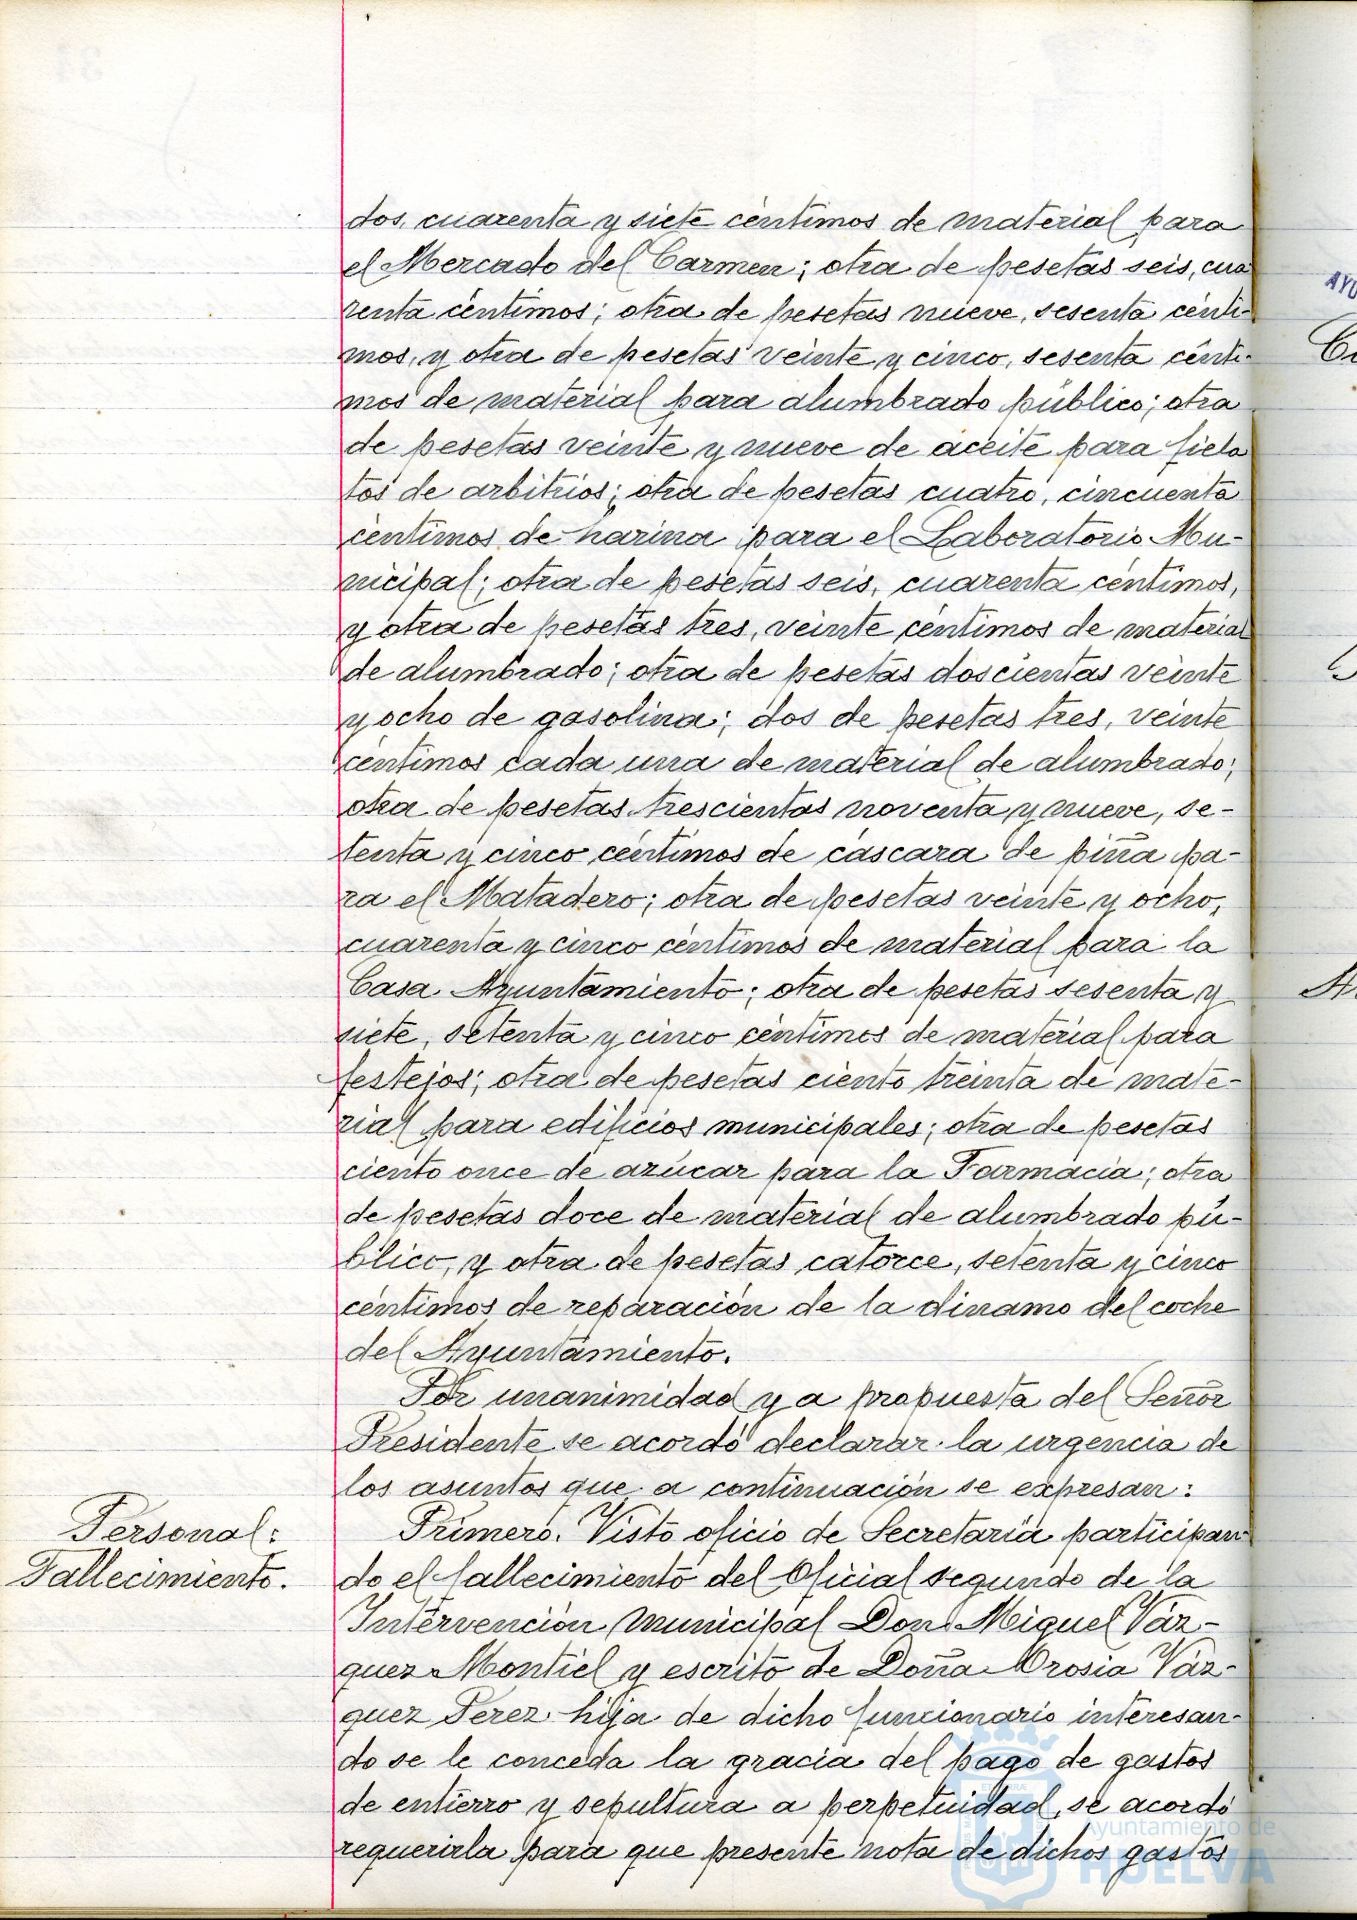 dos, cuarenta y siete céntimos de material para
el Mercado del Carmen; otra de pesetas seis, cua
renta céntimos; otra de pesetas nueve, sesenta cénti-
mos, y otra de pesetas veinte y cinco, sesenta cénti-
mos de material para alumbrado público; otra
de pesetas veinte y nueve de aceite para fiela
tos de arbitrios; otra de pesetas cuatro, cincuenta
céntimos de harina para el Laboratorio Mu-
nicipal; otra de pesetas seis, cuarenta céntimos,
y otra de pesetas tres, veinte céntimos de material
de alumbrado; otra de pesetas doscientas veinte
y ocho de gasolina; dos de pesetas tres, veinte
céntimos cada una de material de alumbrado;
otra de pesetas trescientas noventa y nueve, se-
tenta y cinco céntimos de cáscara de piña pa-
ra el Matadero; otra de pesetas veinte y ocho,
cuarenta y cinco céntimos de material para la
Casa Ayuntamiento; otra de pesetas sesenta y
siete, setenta y cinco céntimos de material para
festejos; otra de pesetas ciento treinta de mate-
rial para edificios municipales; otra de pesetas
ciento once de azúcar para la Farmacia; otra
de pesetas doce de material de alumbrado pú-
blico, y otra de pesetas catorce, setenta y cinco
céntimos de reparación de la dinamo del coche
del Ayuntamiento.
Por unanimidad y a propuesta del Señor
Presidente se acordó declarar la urgencia de
los asuntos que a continuación se expresan:
Personal:
Fallecimiento.
Primero. Visto oficio de Secretaría participan-
do el fallecimiento del Oficial segundo de la
Intervención Municipal Don Miguel Váz-
quez Montiel y escrito de Doña Orosia Váz-
quez Perez hija de dicho funcionario interesan-
do se le conceda la gracia del pago de gastos
de entierro y sepultura a perpetuidad, se acordó
requerirla para que presente nota de dichos gastos
Ayuntamiento de
HUELVA